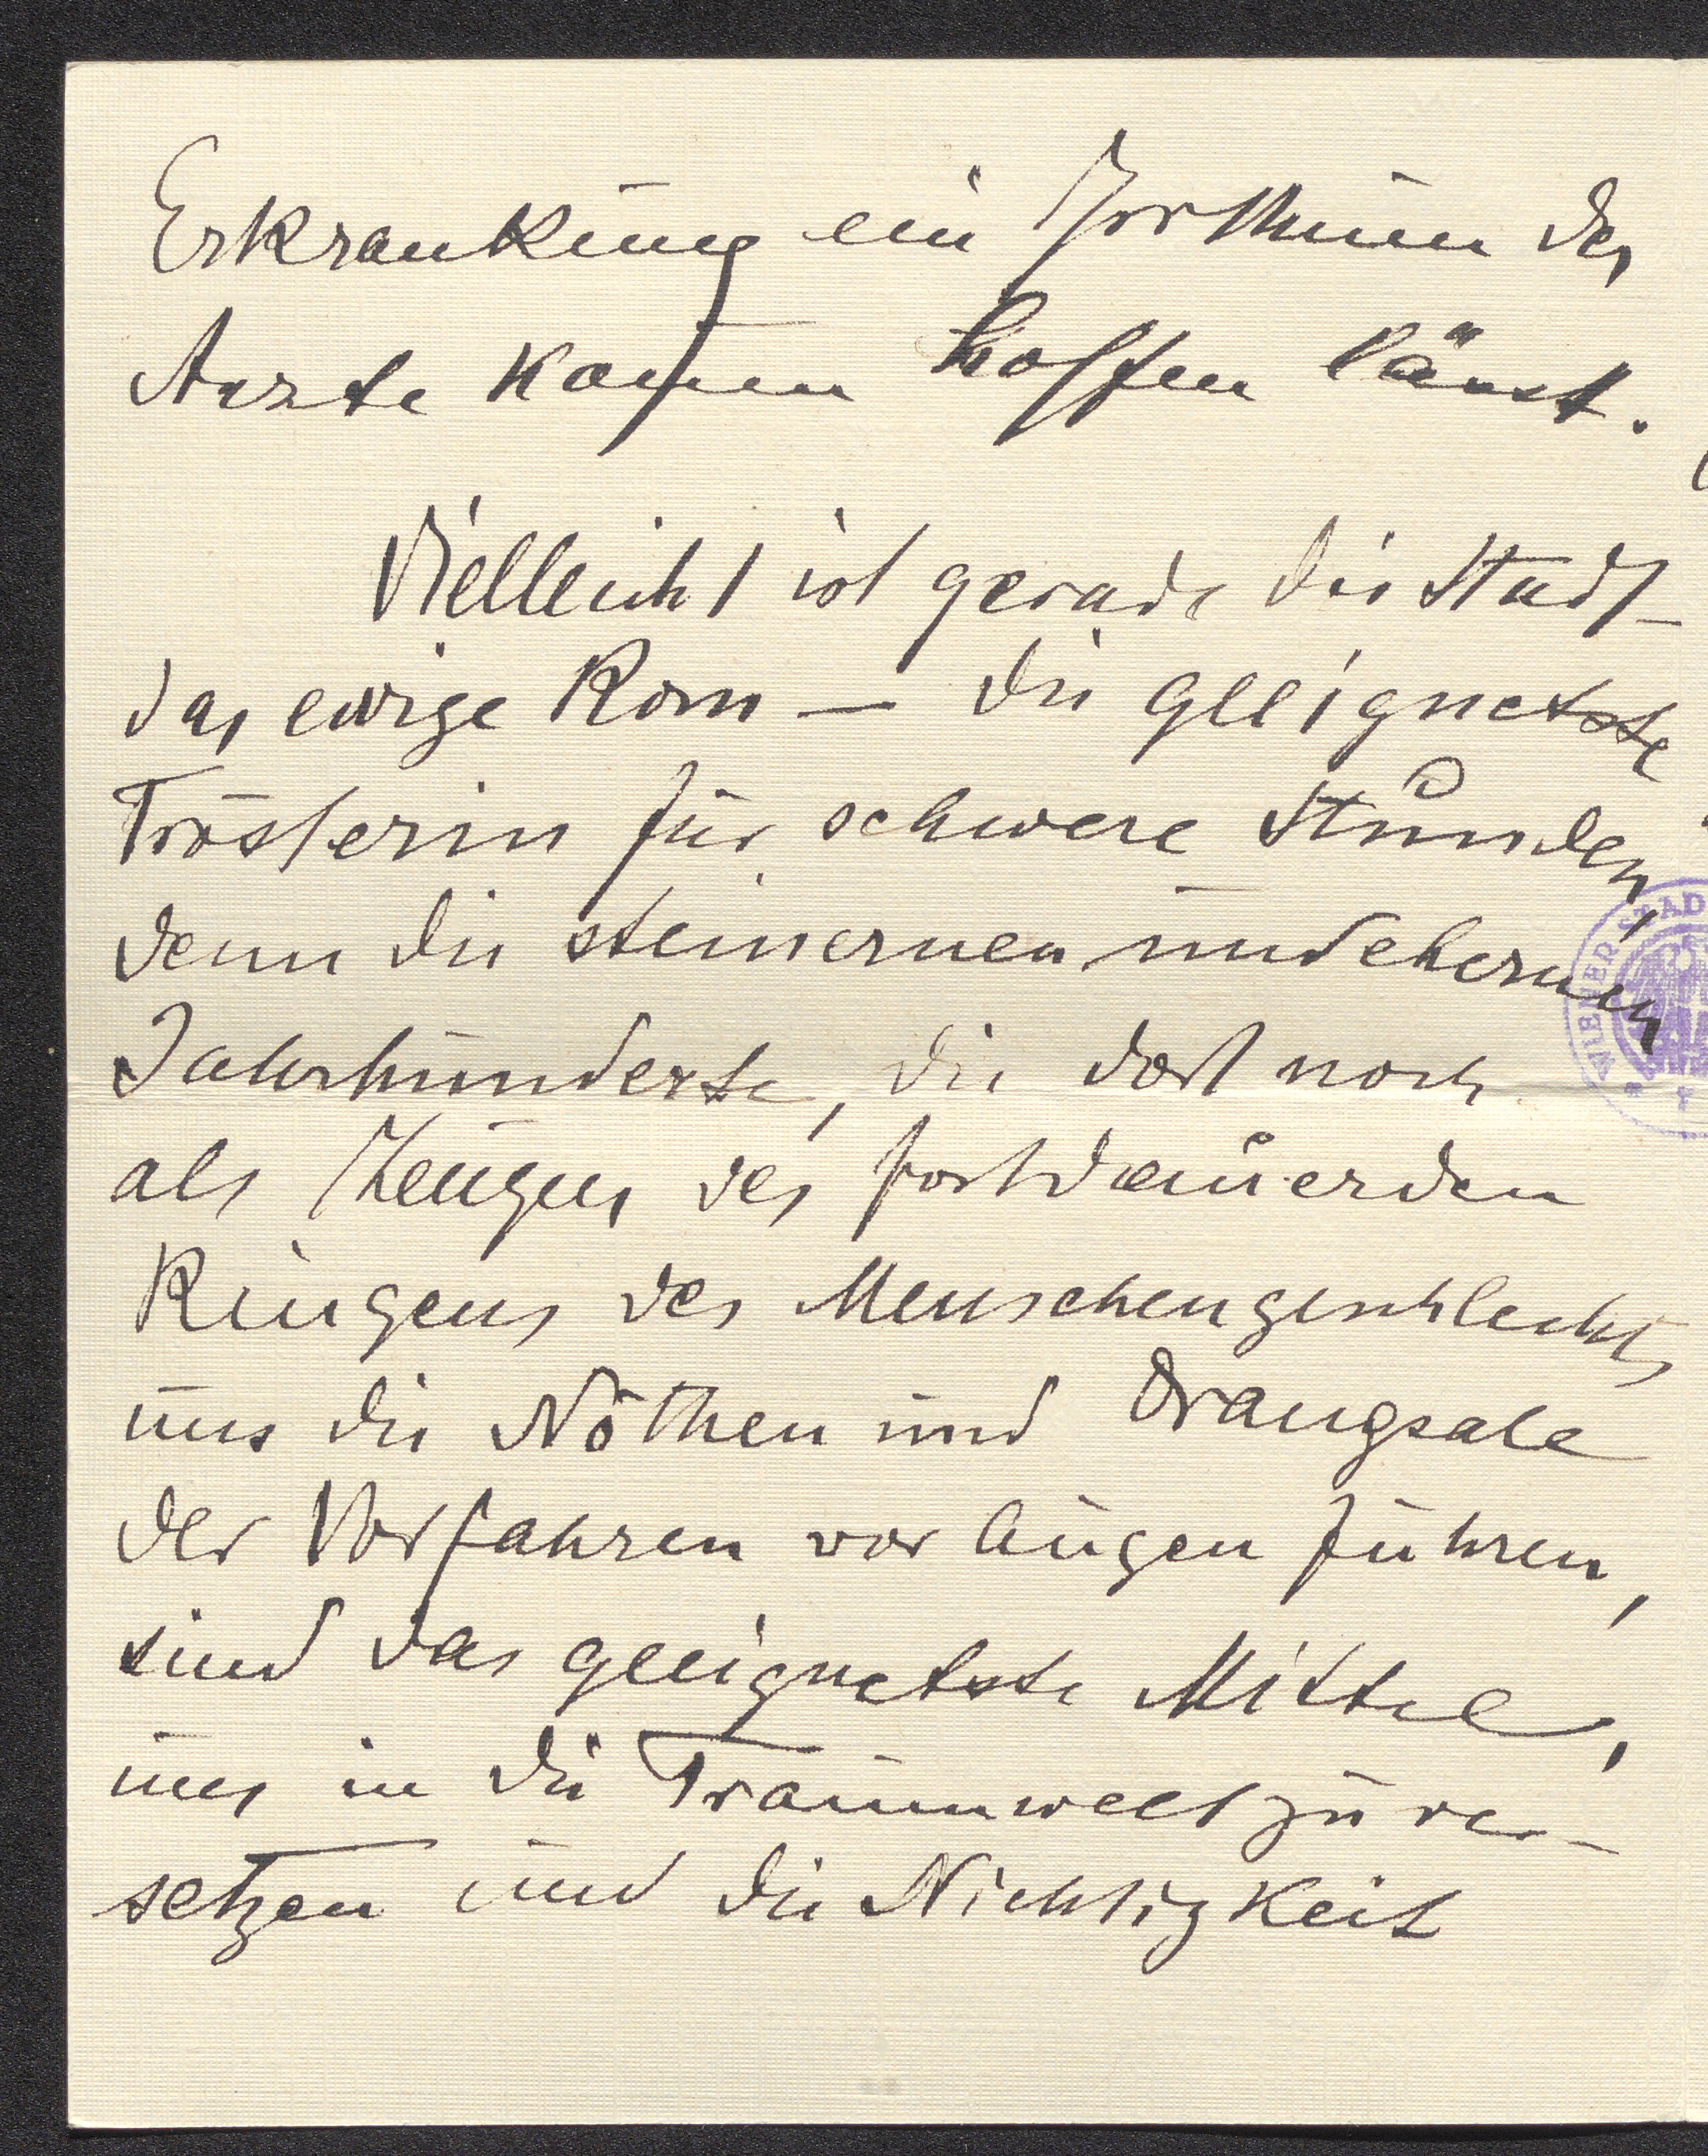 Erkrankung ein Irrthum der
Ärzte kaum hoffen lässt.
Vielleicht ist gerade die Stadt –
das ewige Rom – die geeignetste
Trösterin für schwere Stunden,
denn die steinernen und ehernen
Jahrhunderte, die dort noch
als Zeugen des fortdauerden
Ringens des Menschengeschlechts
uns die Nöthen und Drangsale
der Vorfahren vor Augen führen,
sind das geeignetste Mittel,
uns in die Traumwelt zu ver-
setzen und die Nichtigkeit
WIENER STAD